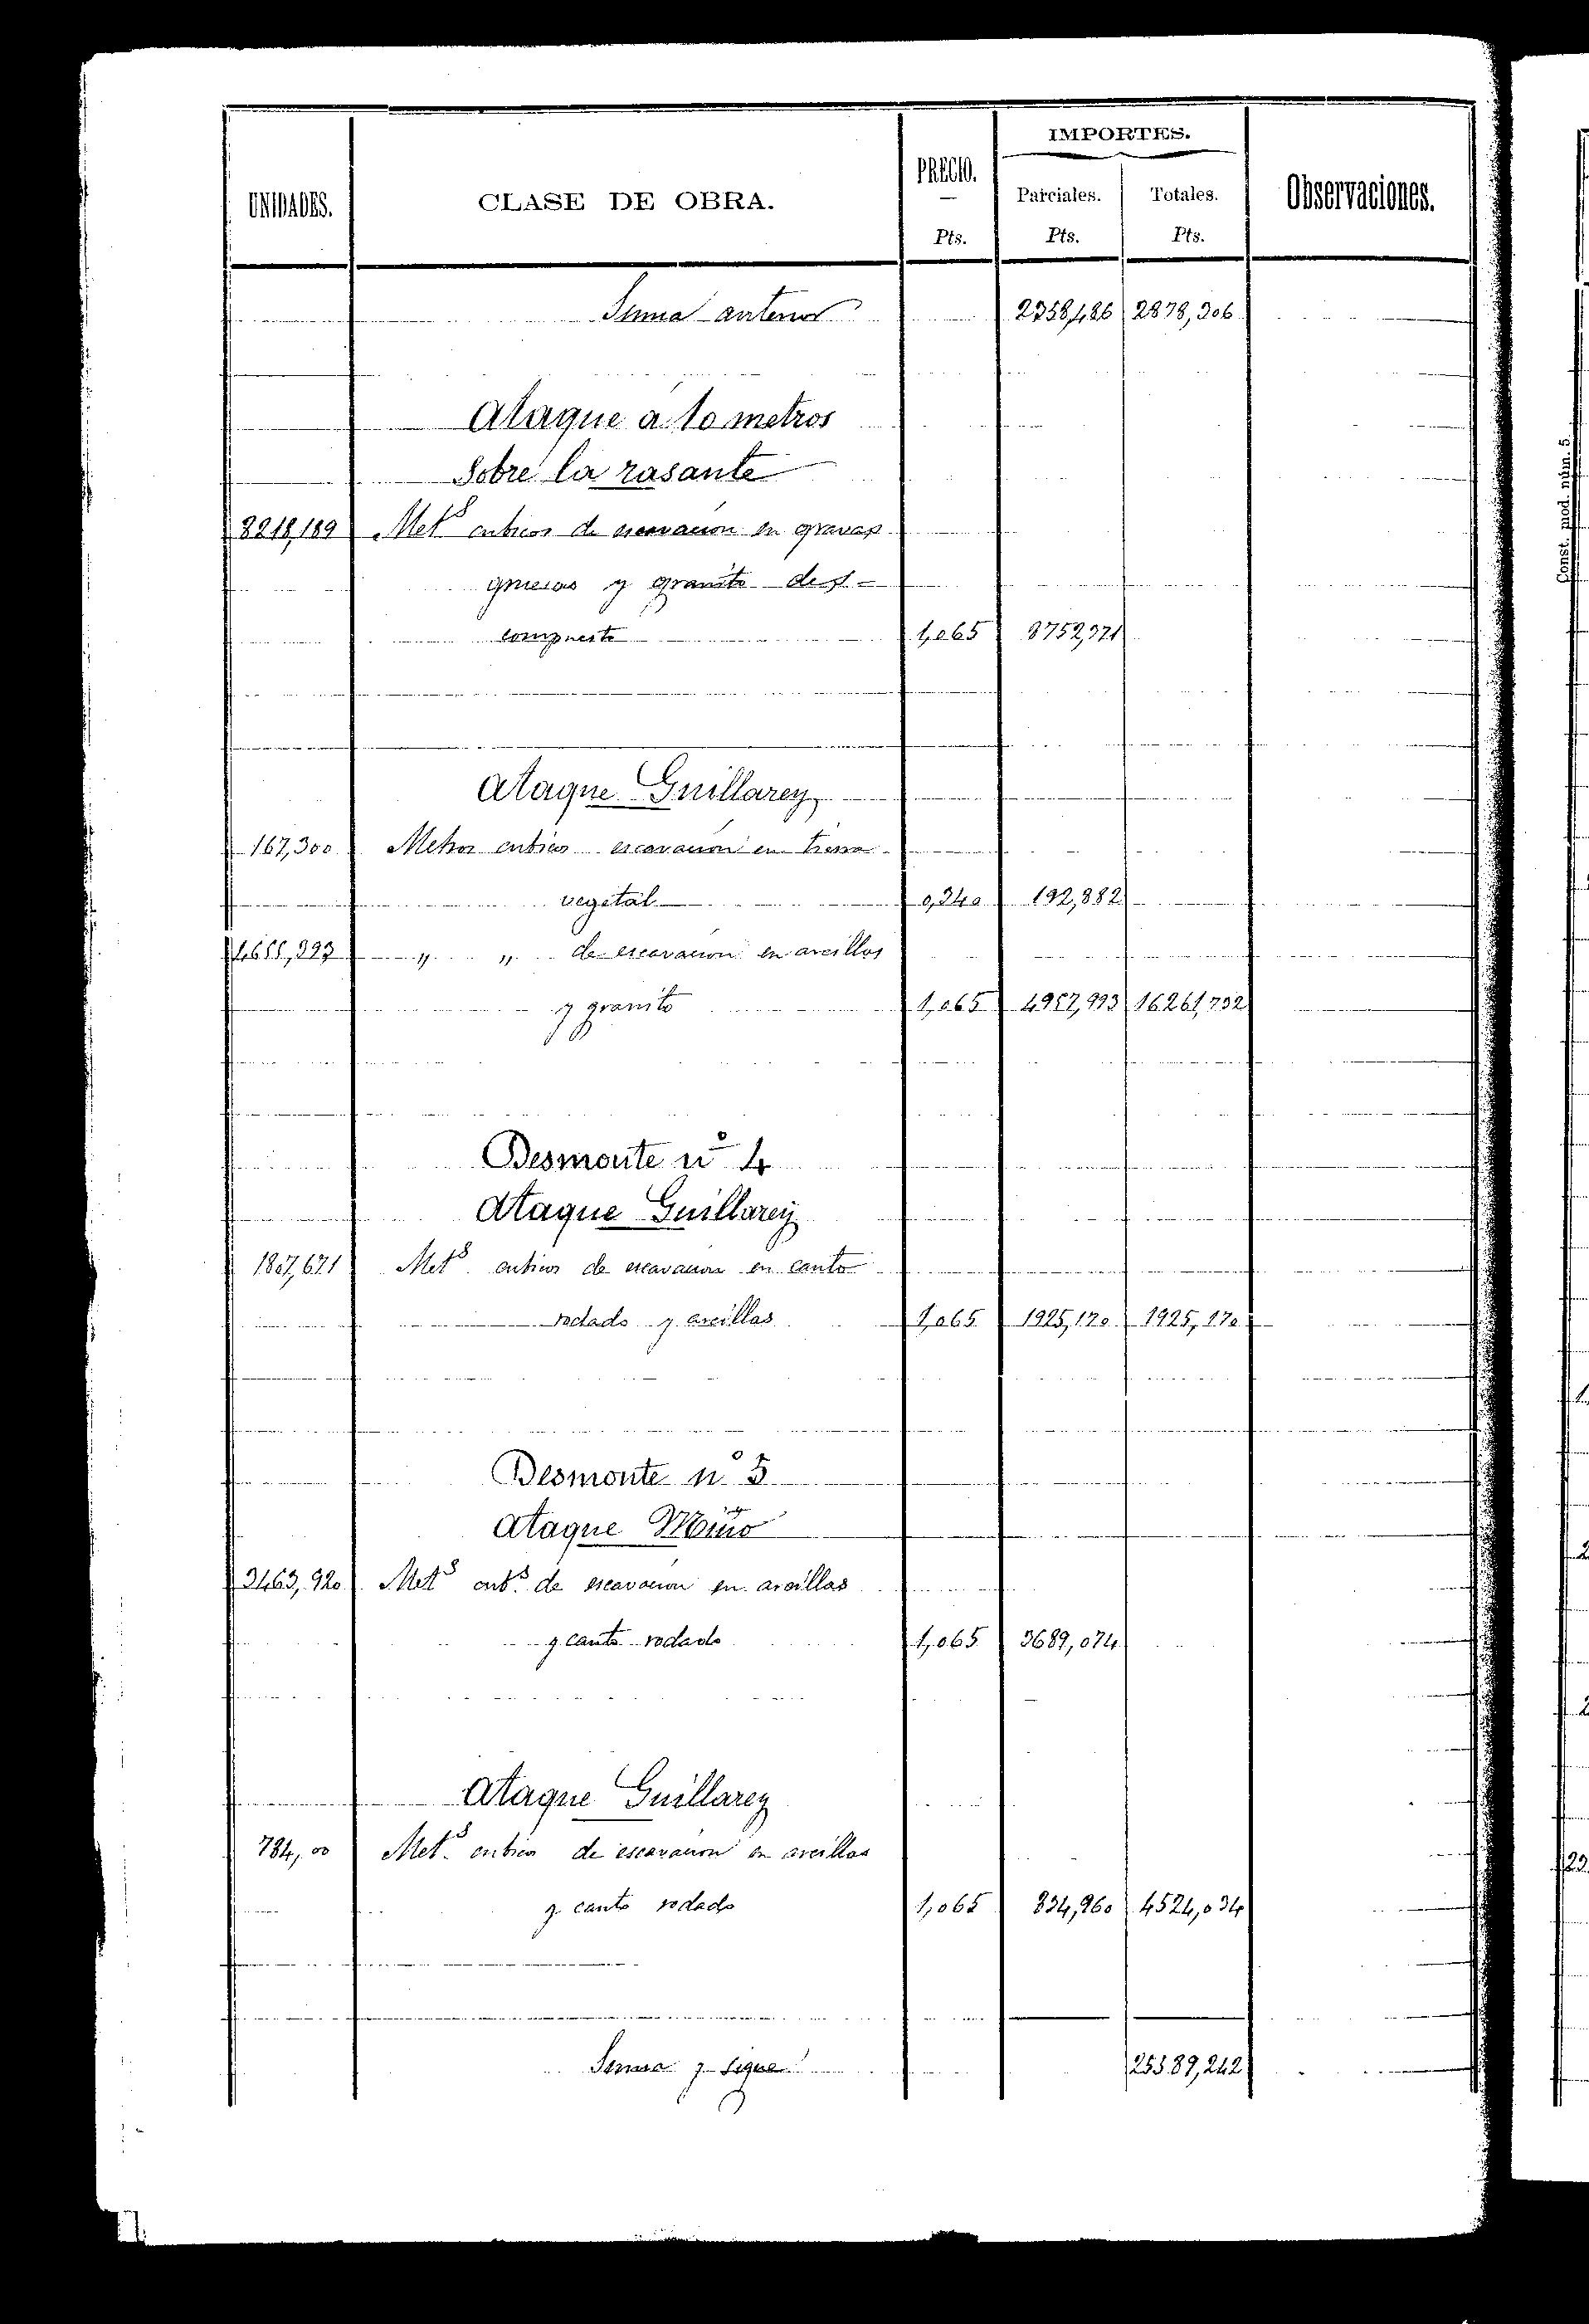 UNIDADES.
CLASE DE OBRA.
PRECIO.
Pts.
IMPORTES.
Parciales. Totales.
Pts. Pts.
Observaciones.
Suma anterior 2358,486 2878,306
Ataque a 10 metros
Sobre la rasante
8218,189 Mets cubicos de escavacion en gravas
gruesas y granito des-
compuesto 1,065 8752,371
Ataque Guillarey
567,300 Metros cubicos escavacion en tierra
vegetal 0,340 192,882
4655,393 " " de escavacion en arcillas
y granito 1,065 4957,993 16261,732
Desmonte nº 4
Ataque Guillarey
1807,671 Mets cubicos de escavacion en canto
rodado y arcillas 1,065 1925,170 1925,170
Desmonte nº 5
Ataque Miño
3463,920 Mets cubs de escavacion en arcillas
y canto rodado 1,065 3689,074
Ataque Guillarey
784,00 Mets cubicos de escavacion en arcillas
y canto rodado 1,065 834,960 4524,034
Suma y sigue 25589,242
Const. mod. núm. 5.